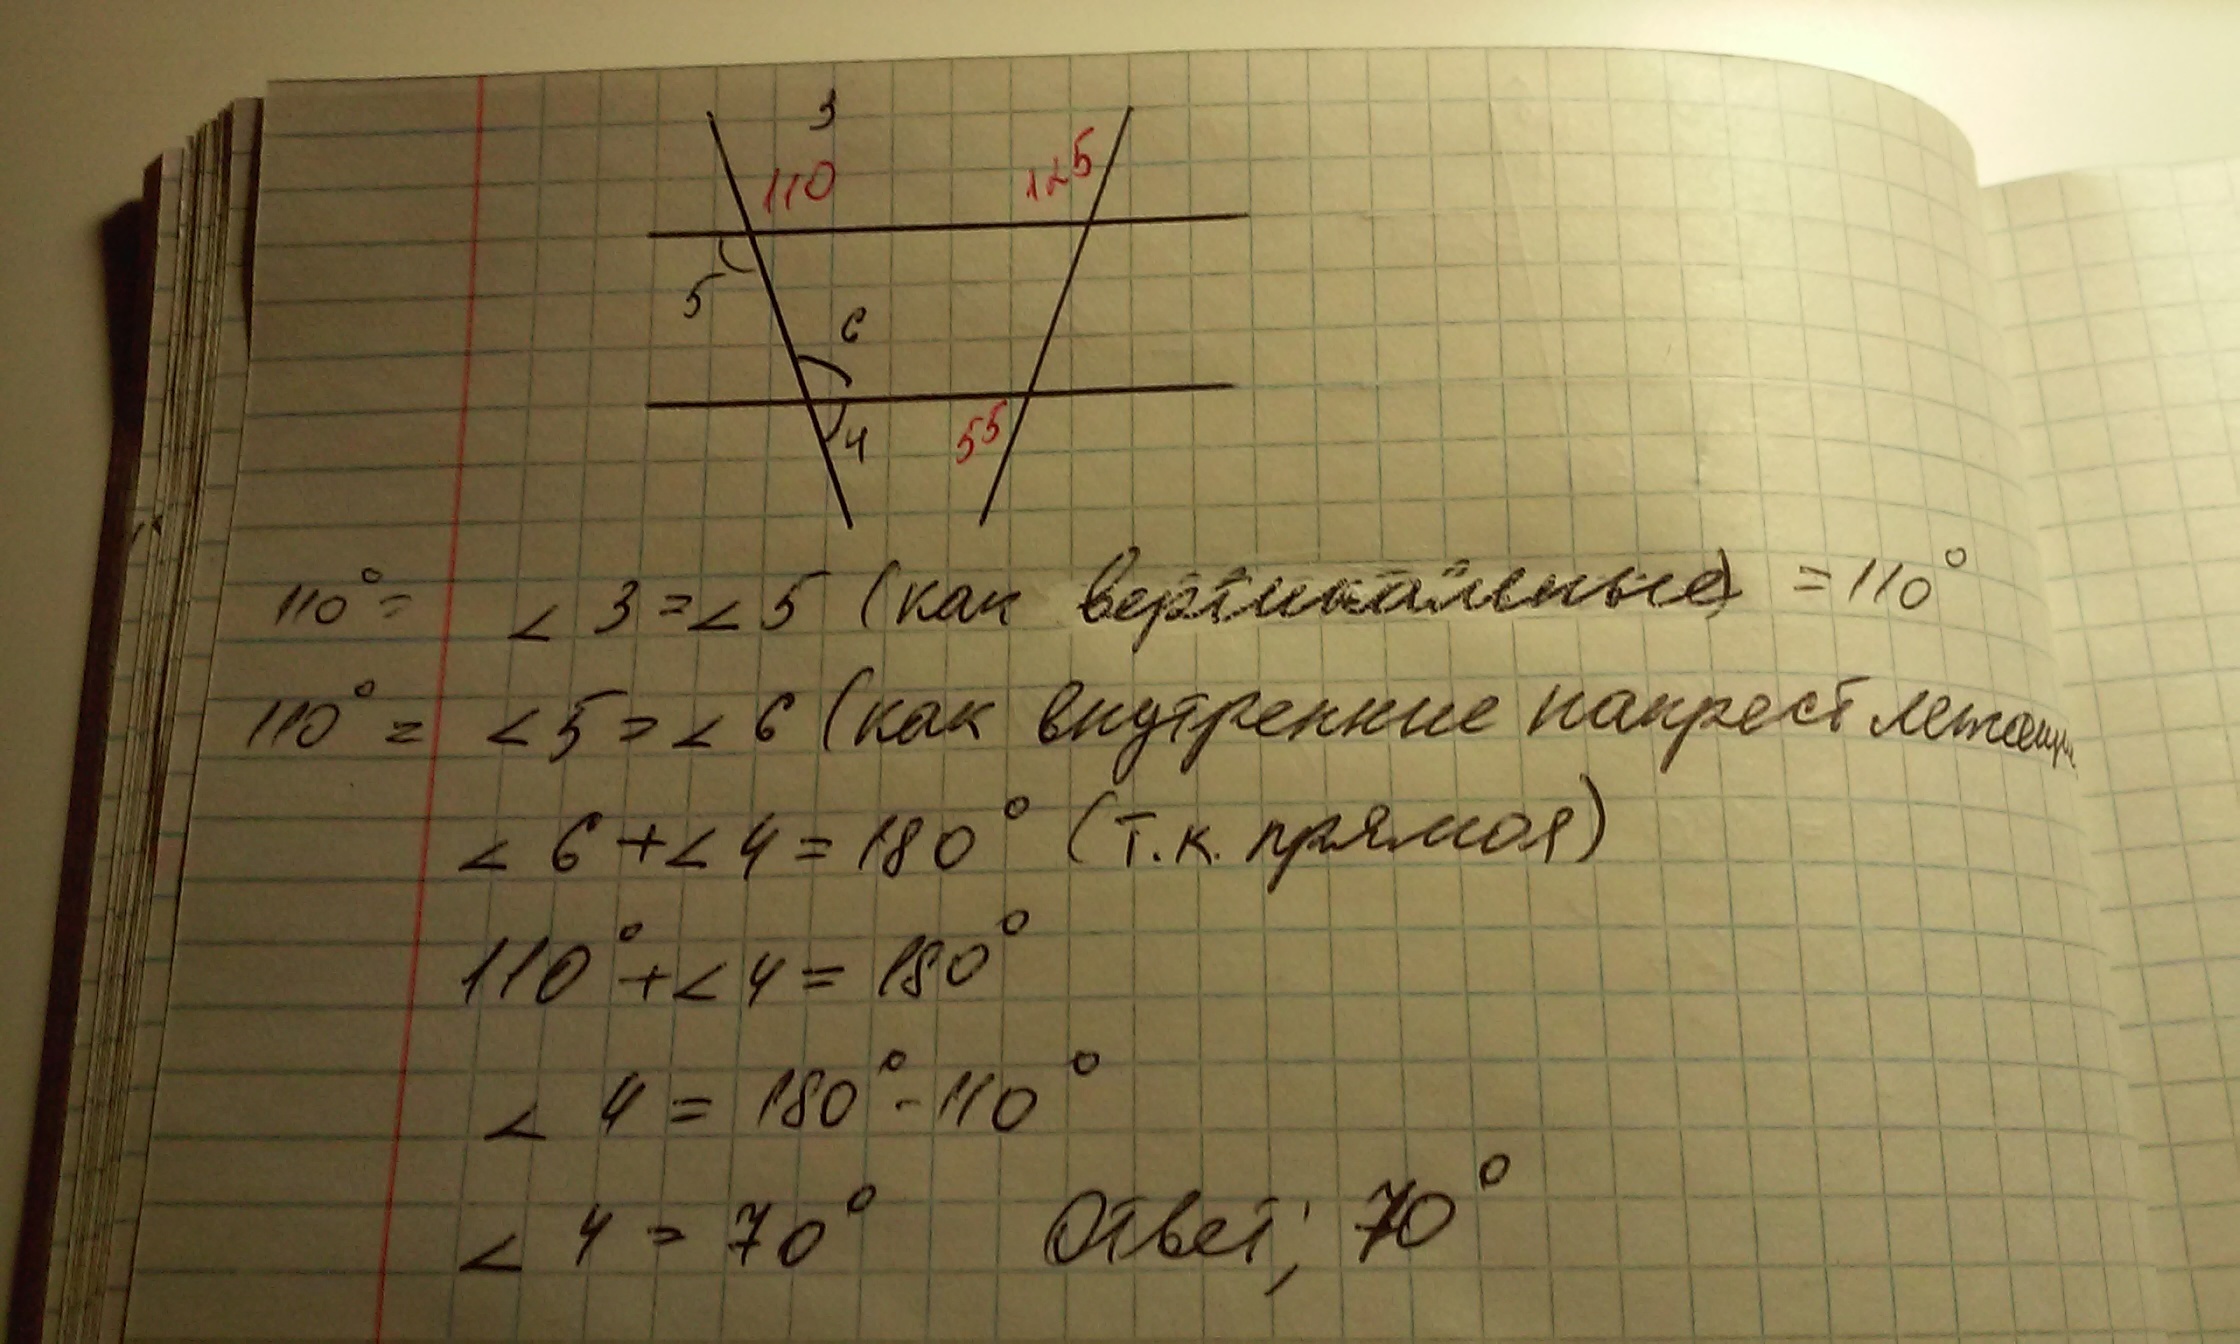 3
110
125
5
6
55
4
110° = ∠3 = ∠5 (как вертикальные) = 110°
110° = ∠5 = ∠6 (как внутренние накрест лежащи
∠6 + ∠4 = 180° (т.к. прямая)
110° + ∠4 = 180°
∠4 = 180° - 110°
∠4 = 70° Ответ; 70°